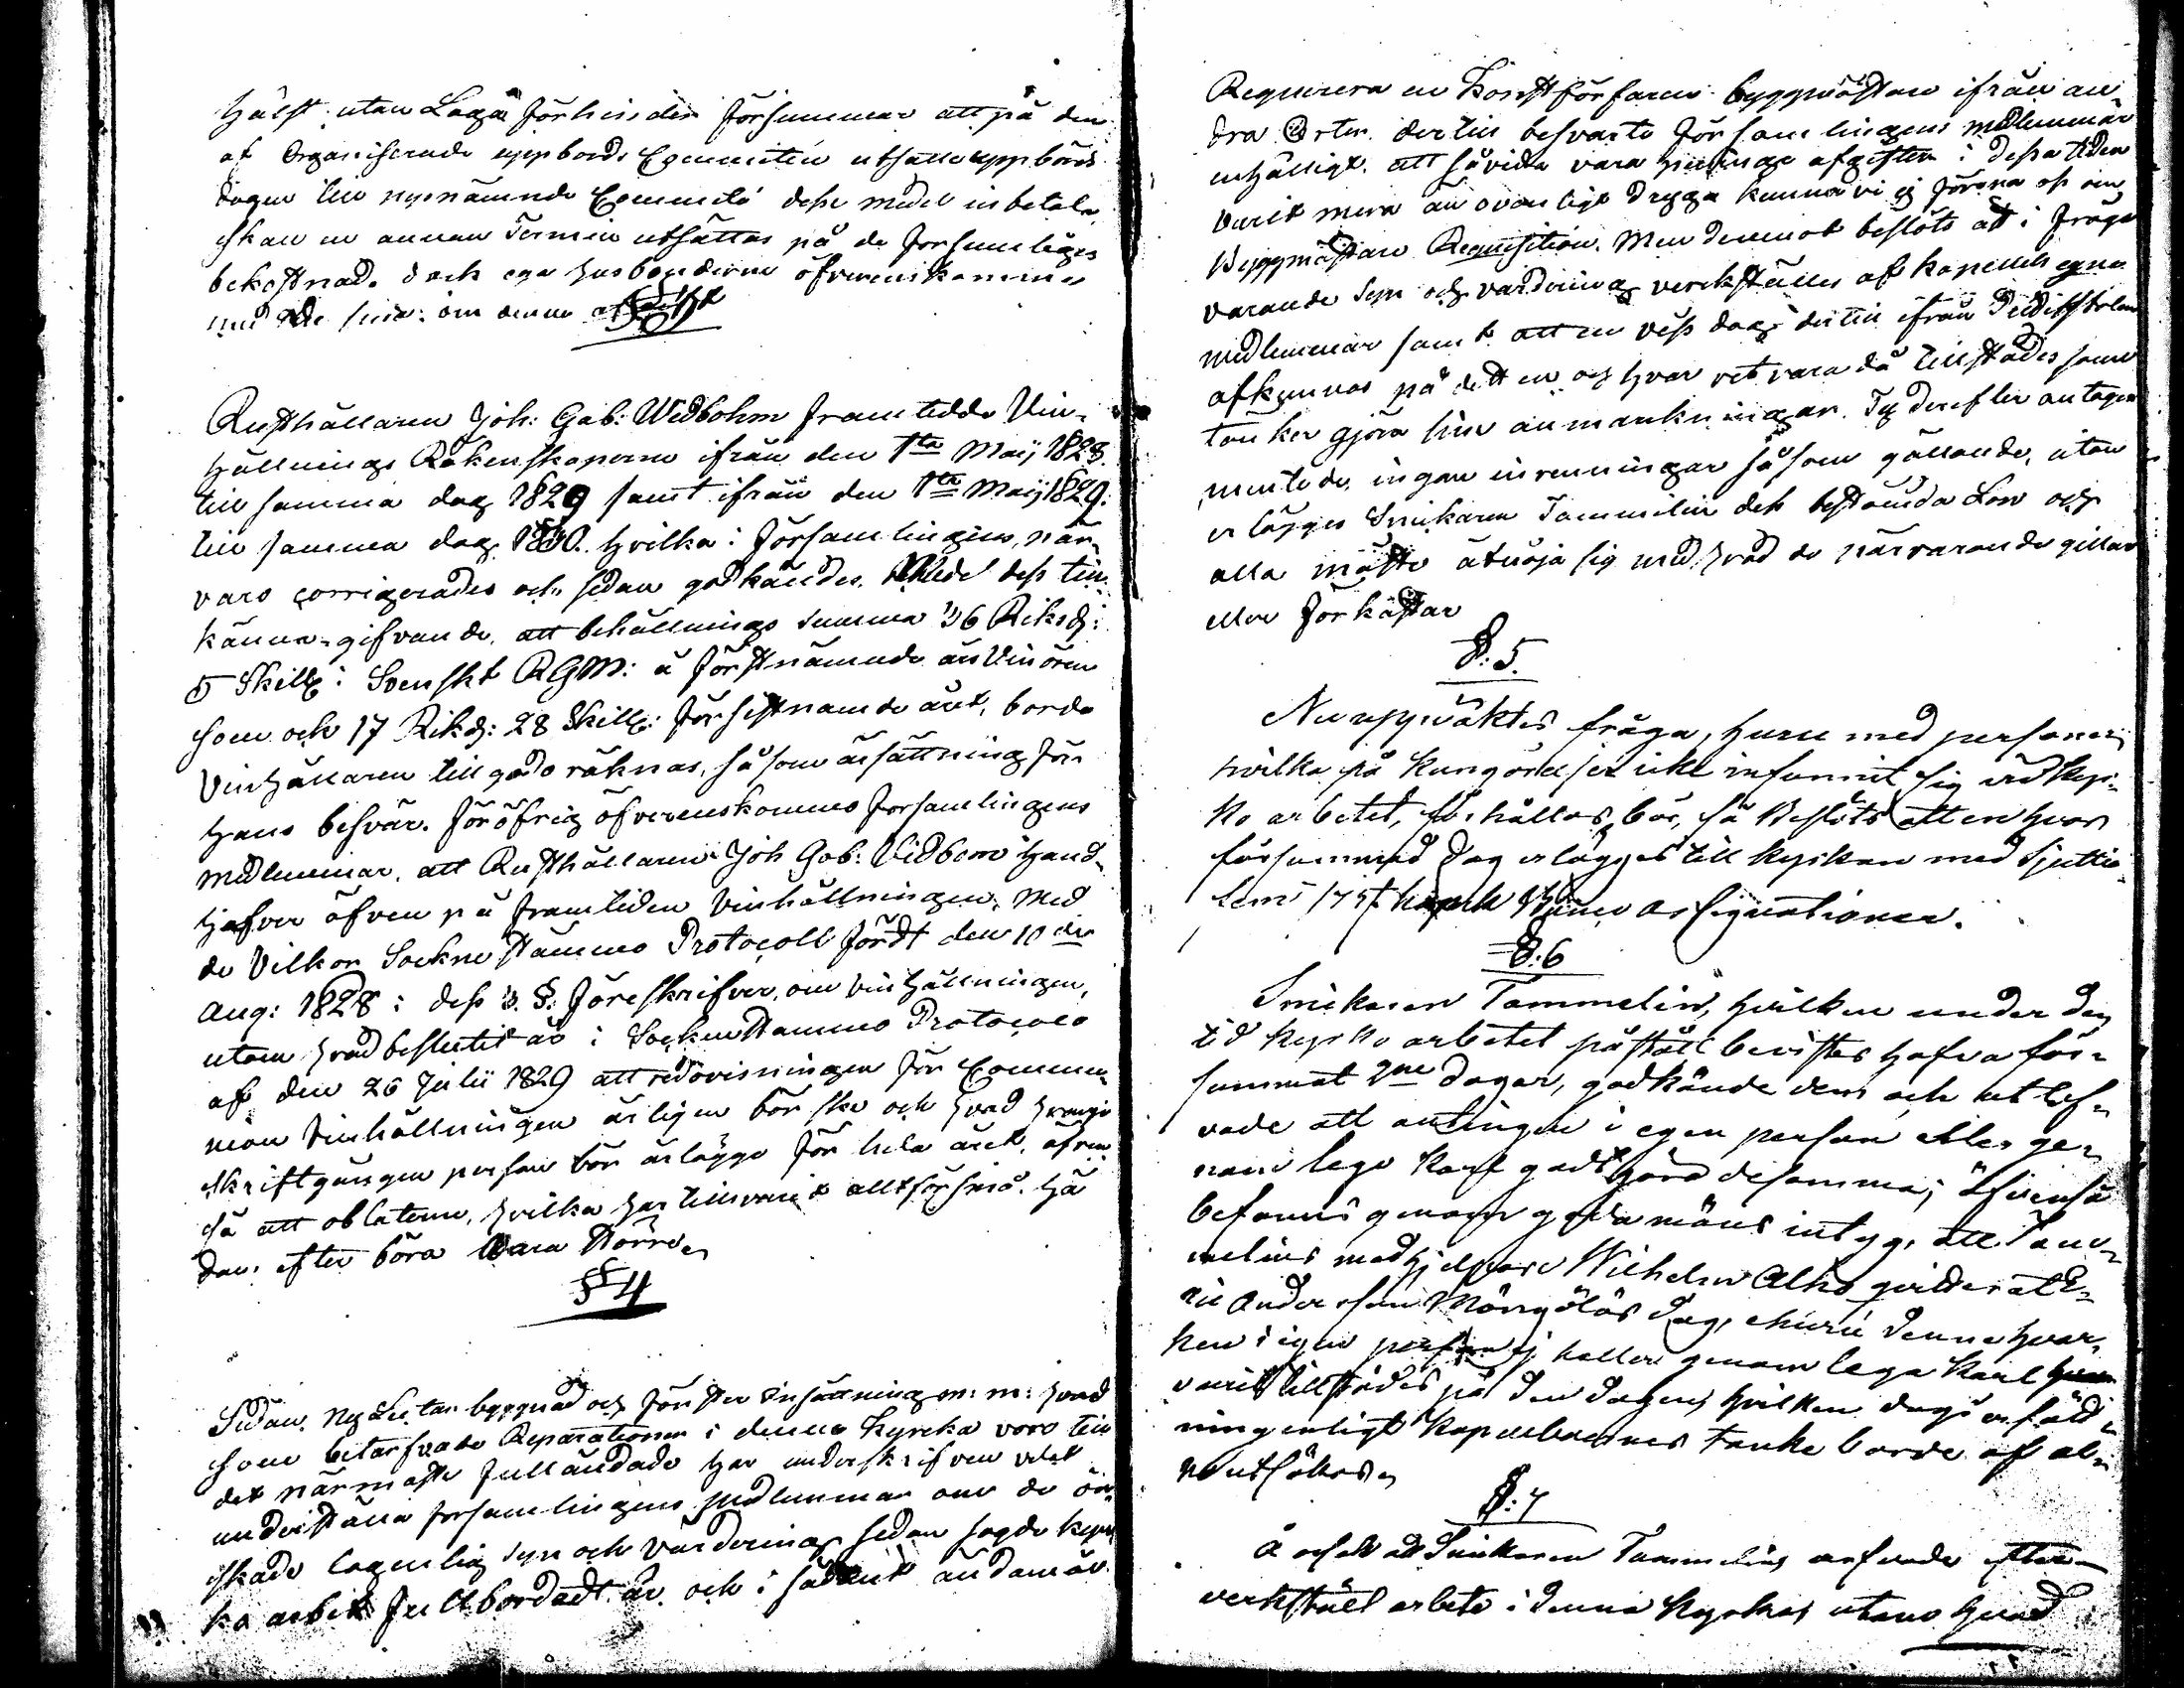 hälst utan Laga förhinder försummar att på den
af Organiserade uppbords Committén utsatte uppbörds
dagen till nysnämnde Committé desse medel inbetala
skall en annan Termin utsättas på de försumliges
bekostnad. dock ega husbönderne öfverenskomma
med
§ 3
Rusthållaren Joh: Gab: Widbohm framtedde Vin-
hållnings Räkenskaperne ifrån den 1ta Maij 1828.
till samma dag 1829 samt ifrån den 1ta Maij 1829.
till samma dag 1830. hvilka i Församlingens när-
varo corrigerades och sedan godkändes. Med dess till
känna-gifvande, att behållnings summa 36 Riksd:
5 Skill: Svenskt RGM: å förstnämnde års Vinören
som och 17 Rikd: 28 Skill: för sistnämnde året, borde
Vinhållaren till godo räknas, såsom ersättning för
hans besvär. För öfrig öfverenskommo Församlingens
medlemmar, att Rusthållaren Joh Gab: Vidbom hand-
hafver äfven på framtiden Vinhållningen, med
de Vilkor Sockne Stämmo Protocoll fördt den 10de
Aug: 1828 i dess 3. §. Föreskrifver, om Vinhållningen,
utom hvad beslutit är i Sockne Stämmo Protocoll
af den 26 Julii 1829 att redovisningen för Commu-
nion Vinhållningen årligen bör ske och hvad hvarje
skriftgången person bör erlägga för hela året, äfven
så att oblaterne, hvilka har tills varit allt för små. hä
dan efter böra vara större
§ 4
Sedan ny Lectar byggnad och fönster insättning m: m: hvad
som betarfvade Reparationer i denne Kyrka voro till
det närmaste fulländade har underskrifven velat
underställa församlingens medlemmar om de ön-
skade lagenlig syn och värdering sedan sagde kyr-
ko arbete fullbordadt är och i sådant ändamål
Requirera en Konstförfaren byggmästare ifrån an-
dra Orter. dertill besvarte Församlingens medlemmar
enhälligt. att såvida vara penninge afgifter i dessa tider
varit mera än ovanligt dryga kunna vi ej förena oss om
Byggmästare Requisition. Men deremot beslöts att i fråga
varande Syn och värdering verkställes af kapellets egna
medlemmar samt att en viss dag dertill ifrån Predikstolen
afkunnas på det en och hvar vet vara då tillstädes som
tänker gjöra sine anmärkningar. Ty derefter antagas
ingen invenningar såsom gällande, utan
erlägges Snikaren Tammelin des bestämda Lön och
alla måste åtnöja sig med hvad de närvarande gillar
eller förkastar
§: 5.
Nu uppväktes fråga, huru med personer
hvilka på Kungörelser icke infunnit sig vid kyr-
ko arbetet, förhållas bör, så Beslöts att en hvar
försummad dag erlägges till kyrkan med Sjuttio
fem 75 kopek Banco Assignationer.
§: 6
Snickaren Tammelin, hvilken under den
tid kyrko arbetet påstått bevistes hafva för-
summat 2ne dagar, godkände dem och utlof-
vade att antingen i egen person eller ge-
nom lego karl godtgöra desamma; äfvenså
befanns genom goda mäns intyg, att Tam-
melins medhjelpare Wilhelm Alho
Andersson dag, ehuru denne hvar-
ken i egen person ej heller genom lega karl
varit tillstädes på den dagen, hvilken dags
ning enligt Kapelboernes tanke borde af
utsökas
§: 7
Snickaren Tammelins
verkställt arbete i denna Kyrka, utom hvad